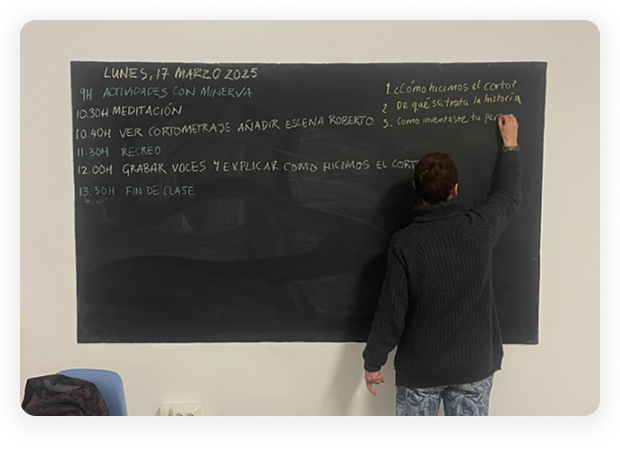 LUNES, 17 MARZO 2025
9H ACTIVIDADES CON MINERVA
10.30H MEDITACIÓN
10.40H VER CORTOMETRAJE AÑADIR ESCENA ROBERTO
11.30H RECREO
12.00H GRABAR VOCES Y EXPLICAR COMO HICIMOS EL CORT
13.30H FIN DE CLASE
1. ¿Cómo hicimos el corto?
2. De qué se trata la historia
3. Como inventaste tu per